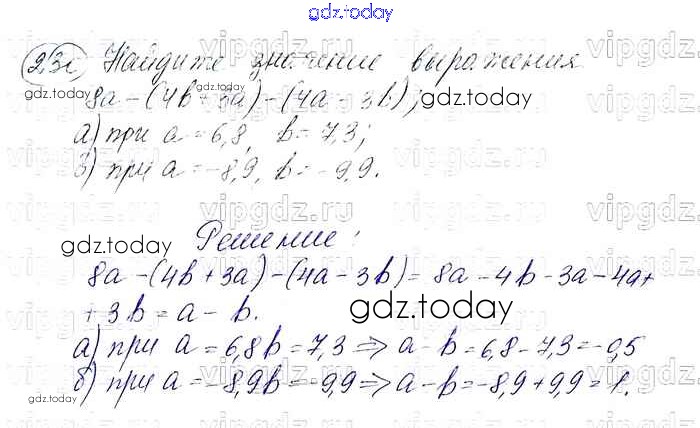 gdz.today
23 Найдите значение выражения
gdz.today
8a-(4b+3a)-(4a-3b); gdz.today
а) при a=6,8, b=7,3;
б) при a=-8,9, b=-9,9.
vipgdz.ru
gdz.today
Решение:
8a-(4b+3a)-(4a-3b)=8a-4b-3a-4a+
+3b=a-b.
gdz.today
а) при a=6,8 b=7,3 => a-b=6,8-7,3=-0,5
б) при a=-8,9 b=-9,9 => a-b=-8,9+9,9=1.
gdz.today